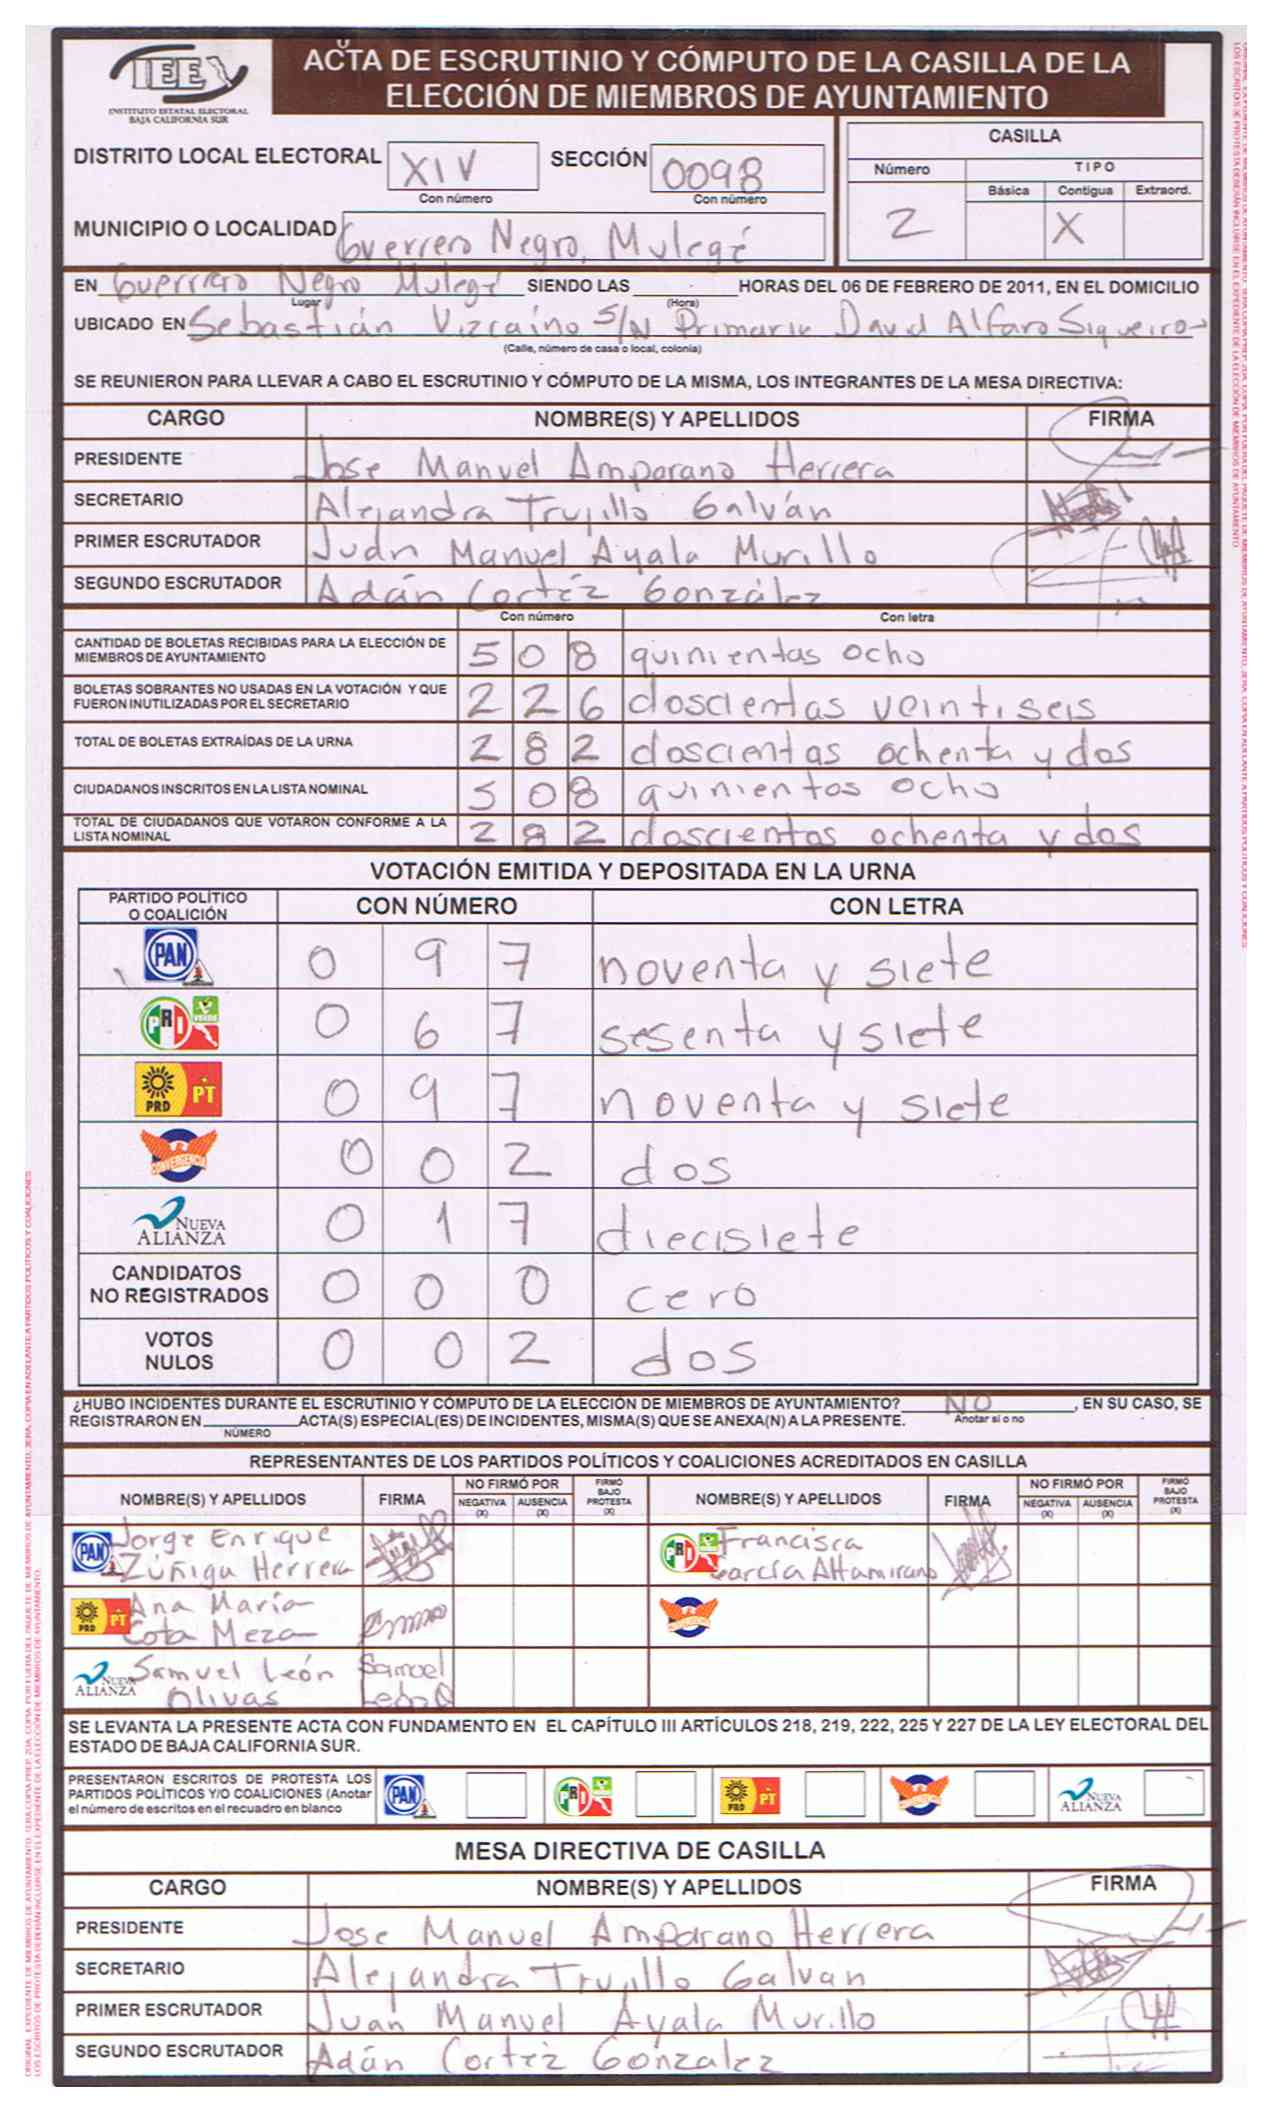 IEE
INSTITUTO ESTATAL ELECTORAL
BAJA CALIFORNIA SUR
ACTA DE ESCRUTINIO Y CÓMPUTO DE LA CASILLA DE LA
ELECCIÓN DE MIEMBROS DE AYUNTAMIENTO
DISTRITO LOCAL ELECTORAL XIV SECCIÓN 0098
Con número Con número
MUNICIPIO O LOCALIDAD Guerrero Negro, Mulegé
CASILLA
Número TIPO
Básica Contigua Extraord.
2 X
EN Guerrero Negro Mulegé SIENDO LAS HORAS DEL 06 DE FEBRERO DE 2011, EN EL DOMICILIO
Lugar (Hora)
UBICADO EN Sebastián Vizcaíno S/N Primaria David Alfaro Siqueiros
(Calle, número de casa o local, colonia)
SE REUNIERON PARA LLEVAR A CABO EL ESCRUTINIO Y CÓMPUTO DE LA MISMA, LOS INTEGRANTES DE LA MESA DIRECTIVA:
CARGO NOMBRE(S) Y APELLIDOS FIRMA
PRESIDENTE Jose Manuel Amparano Herrera
SECRETARIO Alejandra Trujillo Galván
PRIMER ESCRUTADOR Juan Manuel Ayala Murillo
SEGUNDO ESCRUTADOR Adán Cortéz González
Con número Con letra
CANTIDAD DE BOLETAS RECIBIDAS PARA LA ELECCIÓN DE
MIEMBROS DE AYUNTAMIENTO 5 0 8 quinientas ocho
BOLETAS SOBRANTES NO USADAS EN LA VOTACIÓN Y QUE
FUERON INUTILIZADAS POR EL SECRETARIO 2 2 6 doscientas veintiseis
TOTAL DE BOLETAS EXTRAÍDAS DE LA URNA 2 8 2 doscientas ochenta y dos
CIUDADANOS INSCRITOS EN LA LISTA NOMINAL 5 0 8 quinientos ocho
TOTAL DE CIUDADANOS QUE VOTARON CONFORME A LA
LISTA NOMINAL 2 8 2 doscientos ochenta y dos
VOTACIÓN EMITIDA Y DEPOSITADA EN LA URNA
PARTIDO POLÍTICO
O COALICIÓN CON NÚMERO CON LETRA
PAN 0 9 7 noventa y siete
PRI VERDE 0 6 7 sesenta y siete
PRD PT 0 9 7 noventa y siete
CONVERGENCIA 0 0 2 dos
NUEVA
ALIANZA 0 1 7 diecisiete
CANDIDATOS
NO REGISTRADOS 0 0 0 cero
VOTOS
NULOS 0 0 2 dos
¿HUBO INCIDENTES DURANTE EL ESCRUTINIO Y CÓMPUTO DE LA ELECCIÓN DE MIEMBROS DE AYUNTAMIENTO? NO, EN SU CASO, SE
REGISTRARON EN ACTA(S) ESPECIAL(ES) DE INCIDENTES, MISMA(S) QUE SE ANEXA(N) A LA PRESENTE. Anotar si o no
NÚMERO
REPRESENTANTES DE LOS PARTIDOS POLÍTICOS Y COALICIONES ACREDITADOS EN CASILLA
NOMBRE(S) Y APELLIDOS FIRMA NO FIRMÓ POR NEGATIVA (X) AUSENCIA (X) FIRMÓ BAJO PROTESTA (X) NOMBRE(S) Y APELLIDOS FIRMA NO FIRMÓ POR NEGATIVA (X) AUSENCIA (X) FIRMÓ BAJO PROTESTA (X)
PAN Jorge Enrique
Zúñiga Herrera
PRI Francisca
García Altamirano
PRD PT Ana María
Cota Meza
NUEVA ALIANZA Samuel León
Olivas
Samuel
León O
SE LEVANTA LA PRESENTE ACTA CON FUNDAMENTO EN EL CAPÍTULO III ARTÍCULOS 218, 219, 222, 225 Y 227 DE LA LEY ELECTORAL DEL
ESTADO DE BAJA CALIFORNIA SUR.
PRESENTARON ESCRITOS DE PROTESTA LOS
PARTIDOS POLÍTICOS Y/O COALICIONES (Anotar
el número de escritos en el recuadro en blanco
PAN PRI PRD PT NUEVA ALIANZA
MESA DIRECTIVA DE CASILLA
CARGO NOMBRE(S) Y APELLIDOS FIRMA
PRESIDENTE Jose Manuel Amparano Herrera
SECRETARIO Alejandra Trujillo Galvan
PRIMER ESCRUTADOR Juan Manuel Ayala Murillo
SEGUNDO ESCRUTADOR Adán Cortéz González